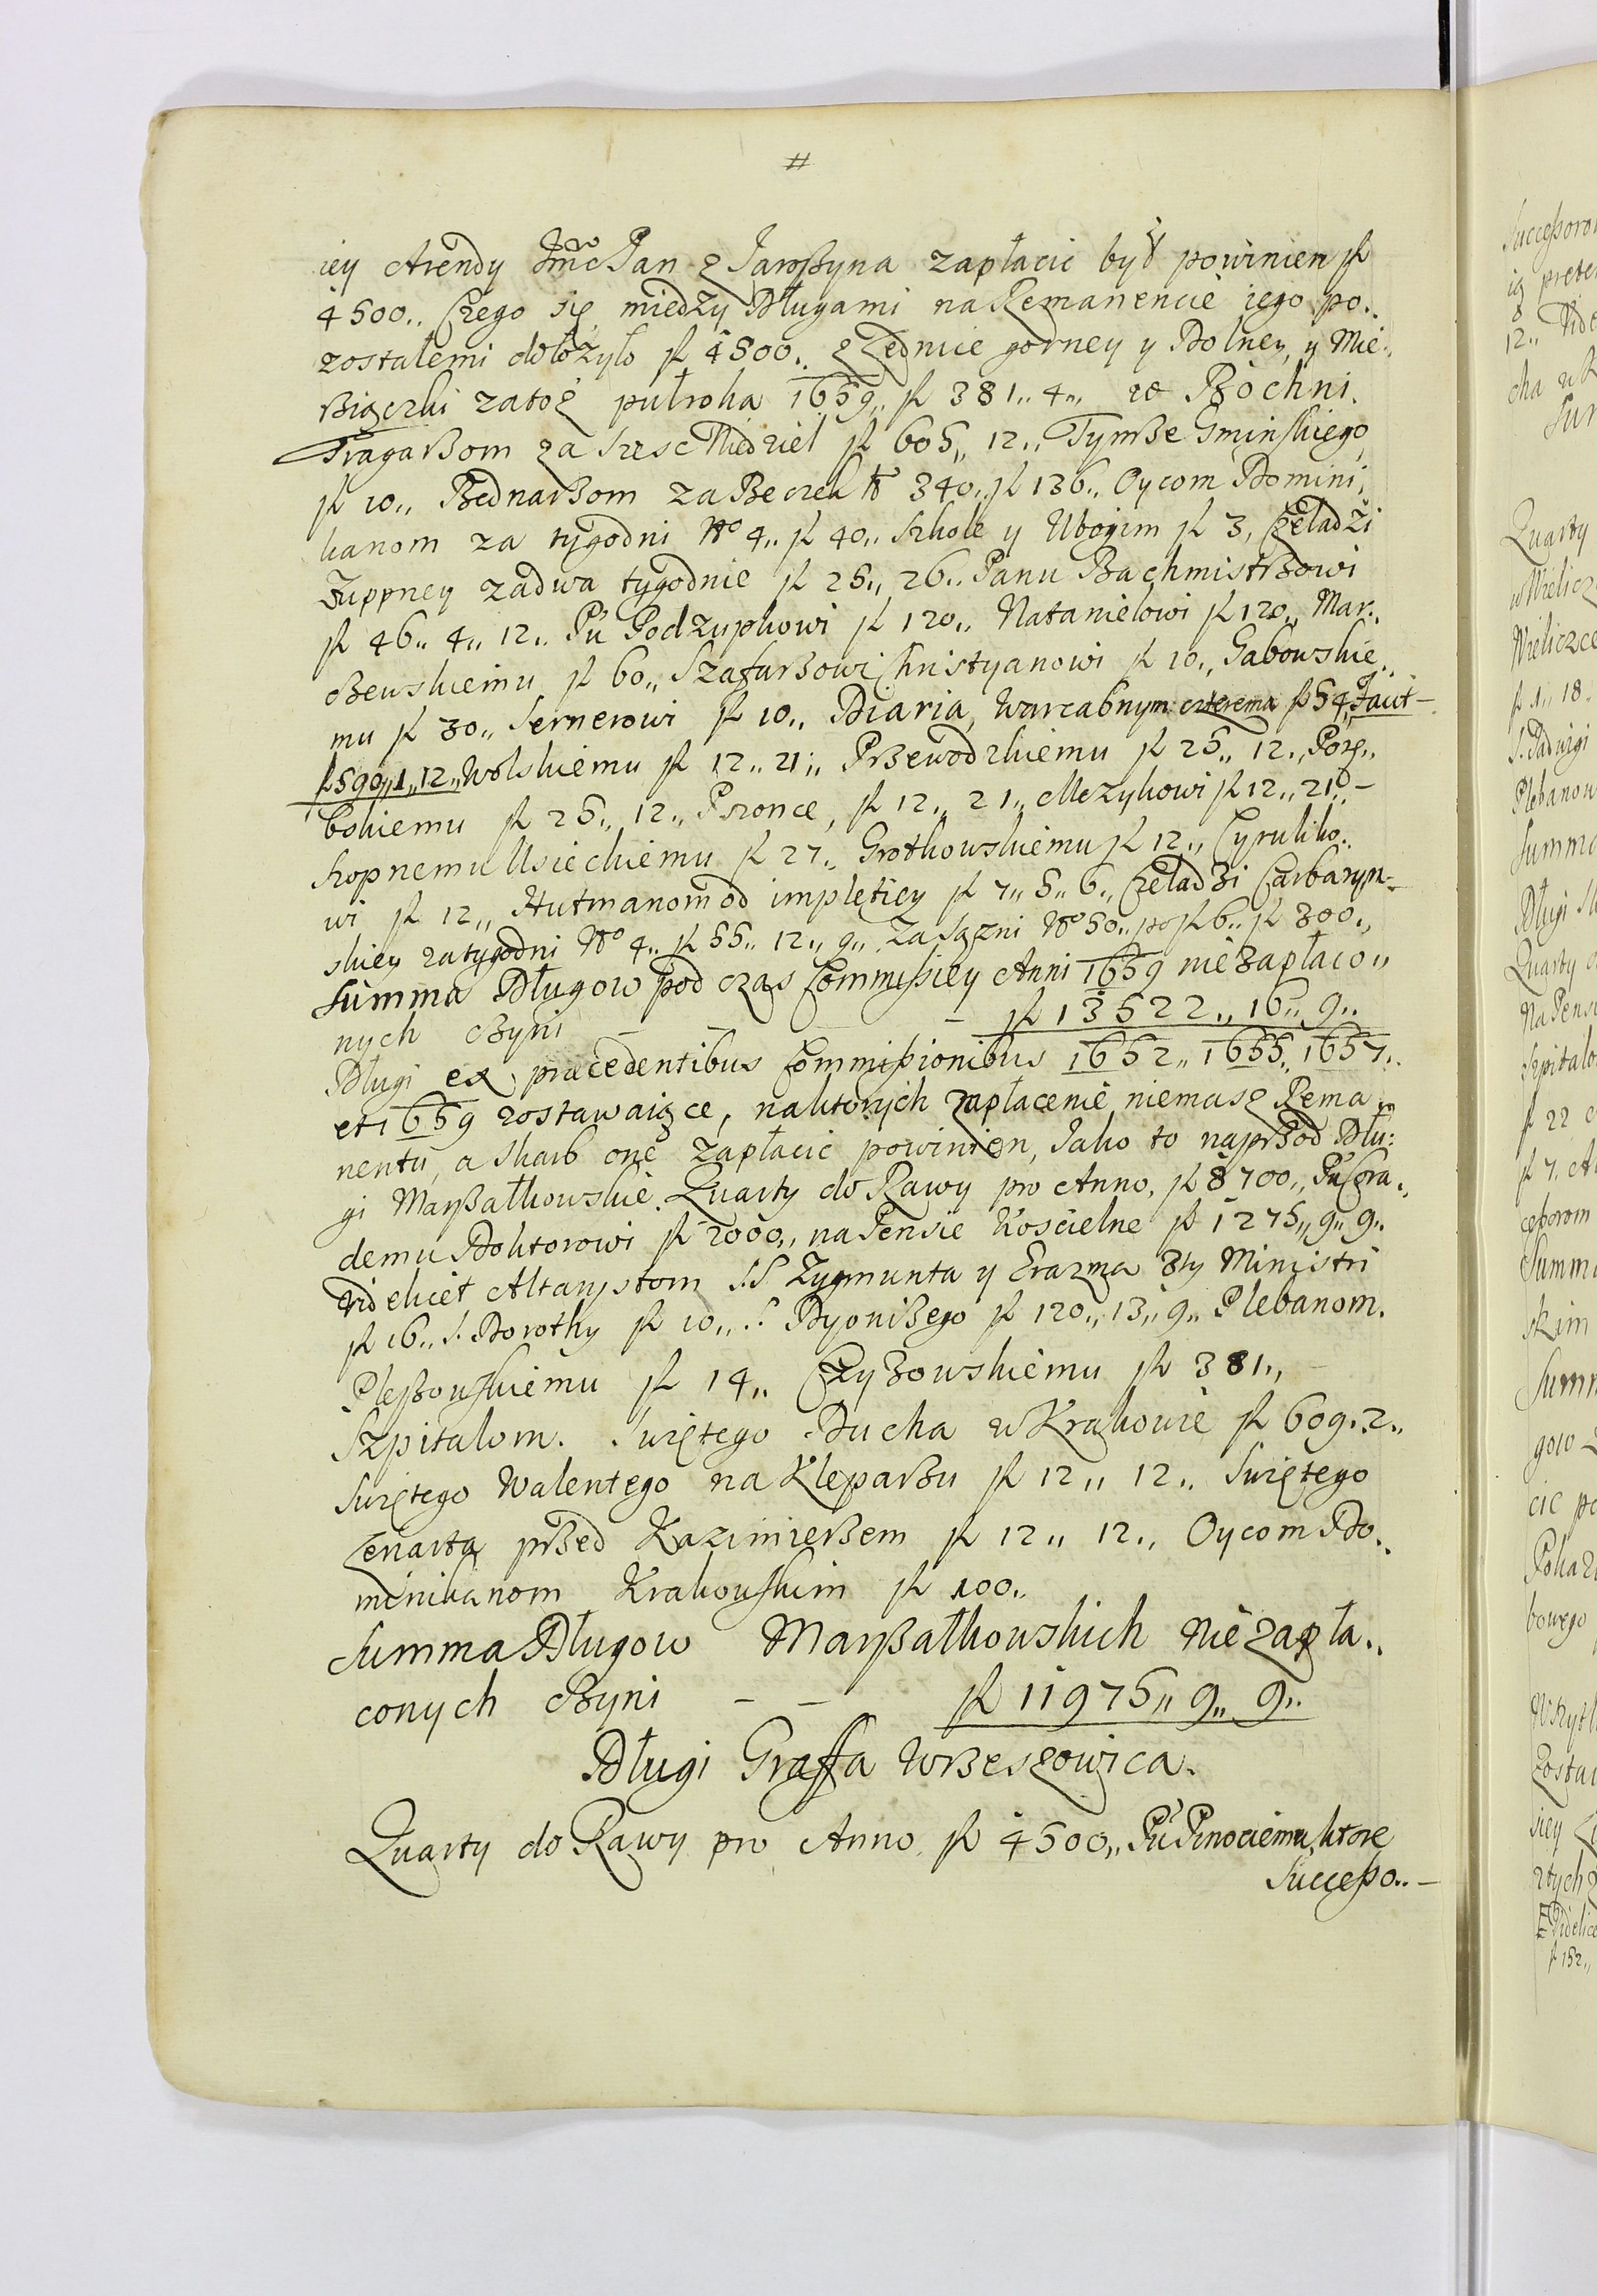 #
iey Arendy Jmc Pan z Jaroszyna zapłacic był powinien fl
4500„ Czego się miedzy Długami na Remanencie iego po„
zostałemi dołożyło fl 4500„ z Zednice gorney y Dolney, y Mie„
siączki zatoż pułroka 1659„ fl 381„ 4„ w Bochni.
Tragarßom za szesc Niedziel fl 605„ 12„ Tymße Gminskiego
fl 10„ Bednarßom za Beczek No 340„ fl 136„ Oycom Domini„
kanom za tygodni No 4„ fl 40„ Szkole y Ubogim fl 3, Czeladzi
Zuppney za dwa tygodnie fl 25„ 26„ Panu Bachmistrzowi
fl 46„ 4„ 12„ Pu Podzupkowi fl 120„ Natanielowi fl 120„ Mar„
czewskiemu fl 60„ Szafarßowi Christyanowi fl 10„ Gabowskie„
mu fl 30„ Sernerowi fl 10„ Diaria Warcabnym czterema fl 54„ Facit –
fl 590„ 1„ 12„ Wolskiemu fl 12„ 21„ Przewodzkiemu fl 25„ 12„ Porę„
bskiemu fl 25„ 12„ Pszonce, fl 12„ 21„ Mezykowi fl 12„ 21„ –
Szopnemu Usieckiemu fl 27„ Grotkowskiemu fl 12„ Cyruliko„
wi fl 12„ Hutmanom od impletiey fl 7„ 5„ 6„ Czeladzi Carbaryn„
skiey za tygodni No 4„ fl 55„ 12„ 9„ Za Sązni No 50„ po fl 6„ fl 300„
Summa Długow pod czas Commissiey Anni 1659 nie zapłaco„
nych czyni – – – fl 13522„ 16„ 9„
Długi ex præcedentibus Commissionibus 1652„ 1655„ 1657„
et 1659 zostawaiące, na ktorych zapłacenie niemasz Rema„
nentu, a Skarb one zapłacic powinien, Jako to naprzod Dłu:
gi Marszałkowskie. Quarty do Rawy pro Anno, fl 8700„ Pu Gra„
demu Doktorowi fl 2000„ na Pensie Koscielne fl 1275„ 9„ 9„
videlicet Altarystom S.S Zygmunta y Erazma 3ty Ministri
fl 16„ S. Dorothy fl 10„ S. Dyonizego fl 120„ 13„ 9„ Plebanom.
Pleszowskiemu fl 14„ Czyzowskiemu fl 381„
Szpitalom. Swiętego Ducha w Krakowie fl 609„ 2„
Swiętego Walentego na Kleparzu fl 12„ 12„ Swiętego
Lenarta przed Kazimierzem fl 12„ 12„ Oycom Do„
minikanom Krakowskim fl 100„
Summa Długow Marszałkowskich niezapła„
conych czyni – – fl 11975„ 9„ 9„
Długi Graffa Wrzeszowica.
Quarty do Rawy pro Anno fl 4500„ Pu Pinociemu, ktore
Successo„ –